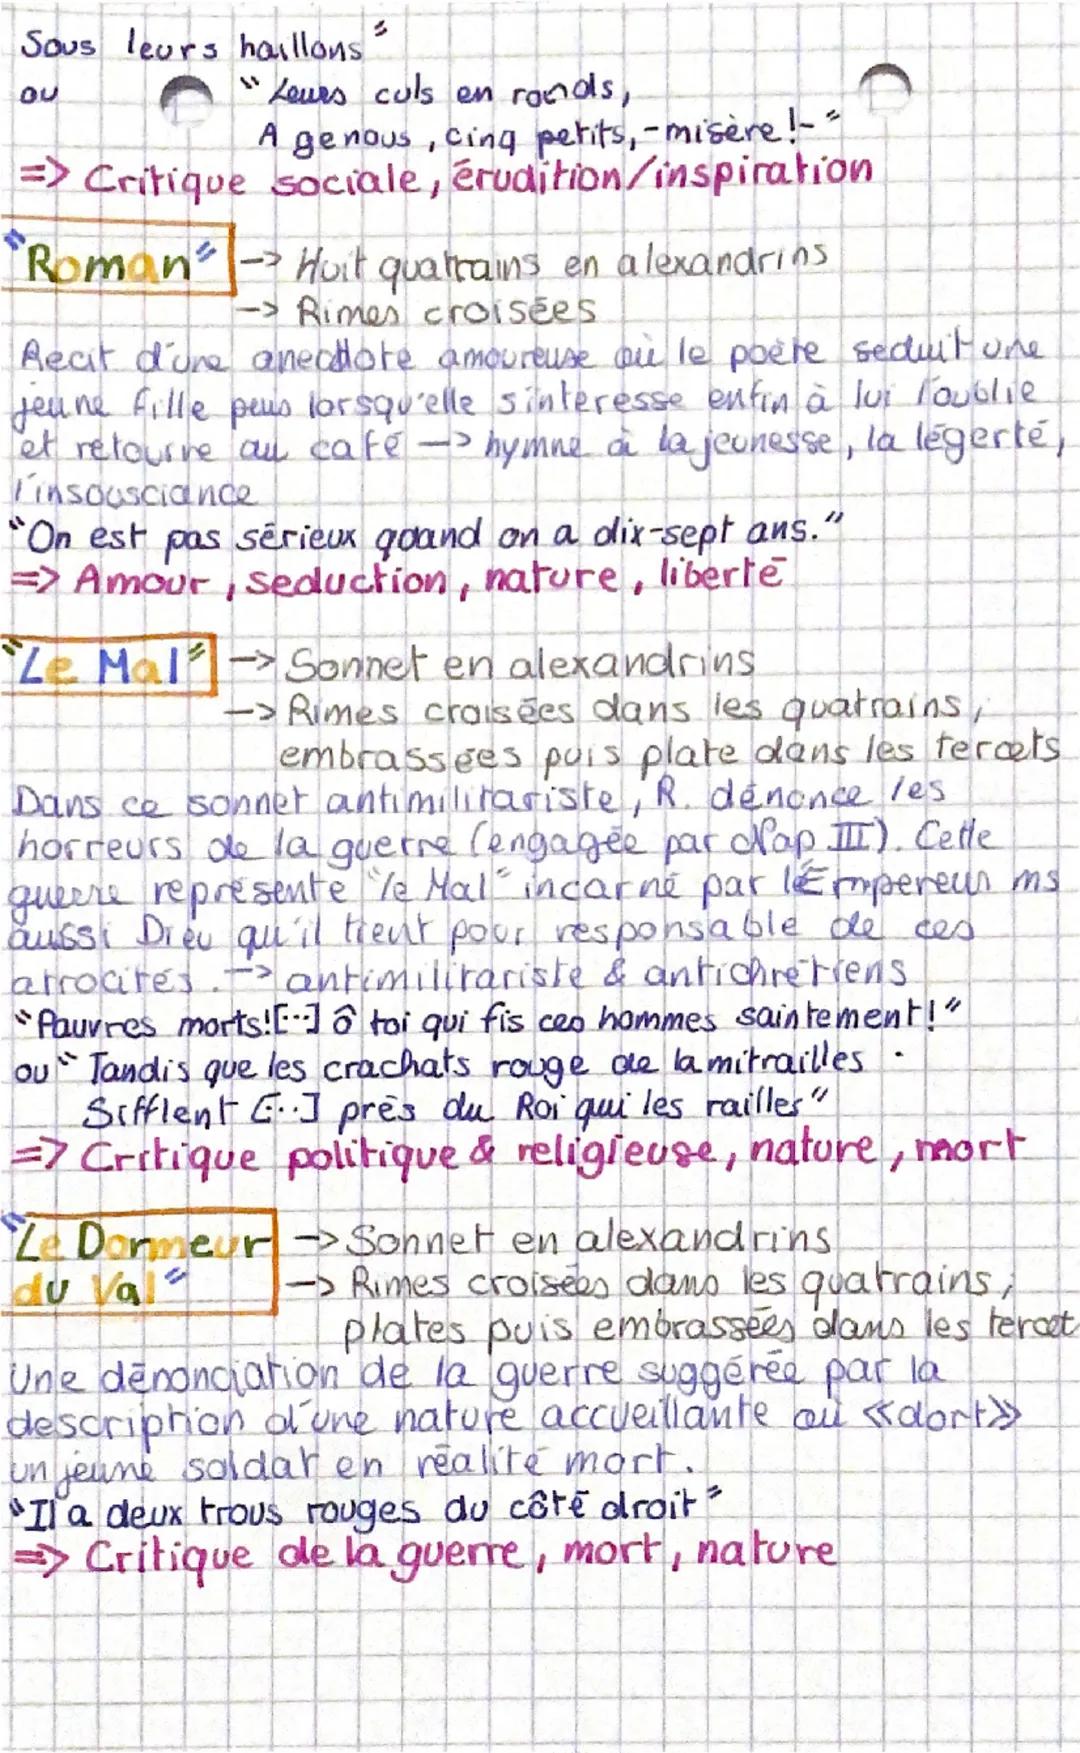 Sous leurs haillons"
ou "Leurs culs en ronds,
A genous, cinq petits, -misère!-"
=> Critique sociale, érudition/inspiration
"Roman" -> Huit quatrains en alexandrins
-> Rimes croisées
Recit d'une anecdote amoureuse où le poète seduit une
jeune fille puis lorsqu'elle s'interesse enfin à lui l'oublie
et retourne au café -> hymne à la jeunesse, la légerté,
l'insousciance
"On est pas sérieux quand on a dix-sept ans."
=> Amour, seduction, nature, liberté
"Le Mal" -> Sonnet en alexandrins
-> Rimes croisées dans les quatrains,
embrassées puis plate dans les tercets
Dans ce sonnet antimilitariste, R. dénonce les
horreurs de la guerre (engagée par Nap III). Cette
guerre représente "le Mal" incarné par l'Empereur ms
aussi Dieu qu'il tient pour responsable de ces
atrocités. -> antimilitariste & antichrétiens
"Pauvres morts! [...] ô toi qui fis ces hommes saintement!"
ou "Tandis que les crachats rouge de la mitrailles
Sifflent [...] près du Roi qui les railles"
=> Critique politique & religieuse, nature, mort
"Le Dormeur -> Sonnet en alexandrins
du Val" -> Rimes croisées dans les quatrains,
plates puis embrassées dans les tercet
Une dénonciation de la guerre suggérée par la
description d'une nature accueillante où «dort»
un jeune soldat en réalité mort.
"Il a deux trous rouges du côté droit"
=> Critique de la guerre, mort, nature